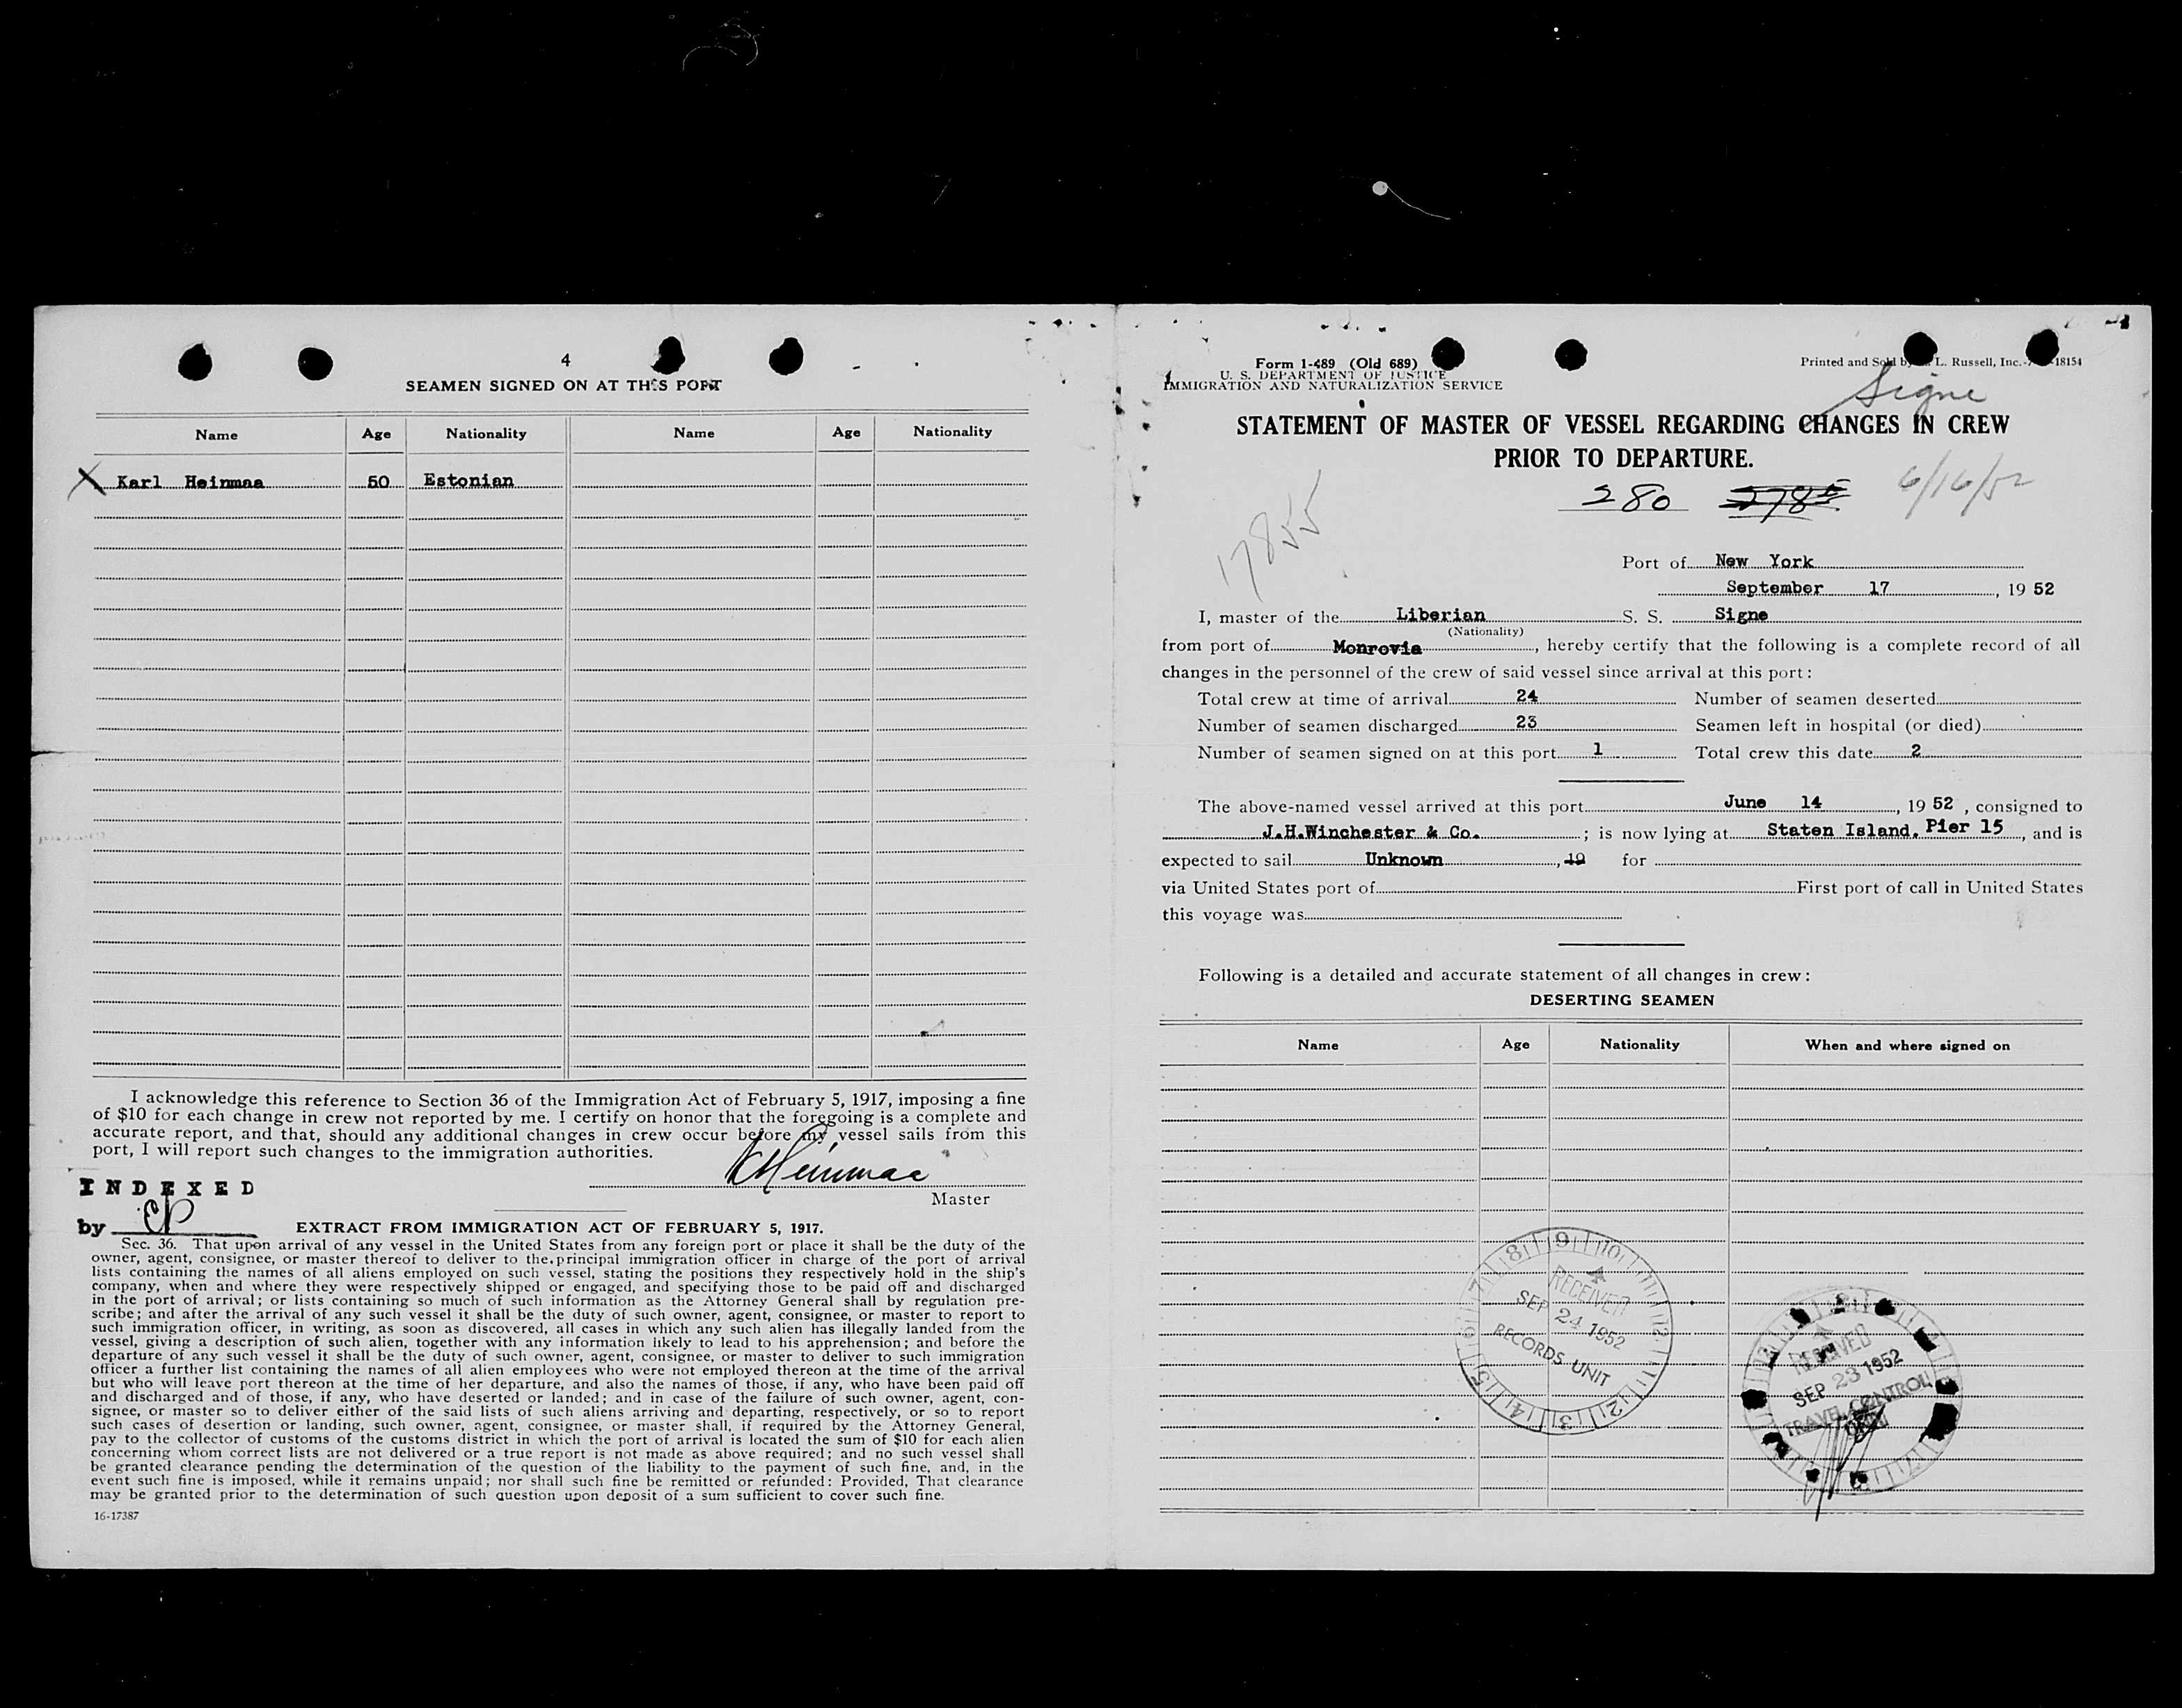 4
SEAMEN SIGNED ON AT THIS PORT
Name Age Nationality Name Age Nationality
X Karl Heinmaa 50 Estonian
I acknowledge this reference to Section 36 of the Immigration Act of February 5, 1917, imposing a fine
of $10 for each change in crew not reported by me. I certify on honor that the foregoing is a complete and
accurate report, and that, should any additional changes in crew occur before my vessel sails from this
port, I will report such changes to the immigration authorities.
KHeinmaa
Master
INDEXED
by EP
EXTRACT FROM IMMIGRATION ACT OF FEBRUARY 5, 1917.
Sec. 36. That upon arrival of any vessel in the United States from any foreign port or place it shall be the duty of the
owner, agent, consignee, or master thereof to deliver to the principal immigration officer in charge of the port of arrival
lists containing the names of all aliens employed on such vessel, stating the positions they respectively hold in the ship's
company, when and where they were respectively shipped or engaged, and specifying those to be paid off and discharged
in the port of arrival; or lists containing so much of such information as the Attorney General shall by regulation pre-
scribe; and after the arrival of any such vessel it shall be the duty of such owner, agent, consignee, or master to report to
such immigration officer, in writing, as soon as discovered, all cases in which any such alien has illegally landed from the
vessel, giving a description of such alien, together with any information likely to lead to his apprehension; and before the
departure of any such vessel it shall be the duty of such owner, agent, consignee, or master to deliver to such immigration
officer a further list containing the names of all alien employees who were not employed thereon at the time of the arrival
but who will leave port thereon at the time of her departure, and also the names of those, if any, who have been paid off
and discharged and of those, if any, who have deserted or landed; and in case of the failure of such owner, agent, con-
signee, or master so to deliver either of the said lists of such aliens arriving and departing, respectively, or so to report
such cases of desertion or landing, such owner, agent, consignee, or master shall, if required by the Attorney General,
pay to the collector of customs of the customs district in which the port of arrival is located the sum of $10 for each alien
concerning whom correct lists are not delivered or a true report is not made as above required; and no such vessel shall
be granted clearance pending the determination of the question of the liability to the payment of such fine, and, in the
event such fine is imposed, while it remains unpaid; nor shall such fine be remitted or refunded: Provided, That clearance
may be granted prior to the determination of such question upon deposit of a sum sufficient to cover such fine.
16-17387
Form 1-489 (Old 689)
U. S. DEPARTMENT OF JUSTICE
IMMIGRATION AND NATURALIZATION SERVICE
Printed and Sold by L. Russell, Inc. 18154
Signe
STATEMENT OF MASTER OF VESSEL REGARDING CHANGES IN CREW
PRIOR TO DEPARTURE.
280 2785 6/16/52
17855
Port of New York
September 17, 1952
I, master of the Liberian S. S. Signe
(Nationality)
from port of Monrovia, hereby certify that the following is a complete record of all
changes in the personnel of the crew of said vessel since arrival at this port:
Total crew at time of arrival 24 Number of seamen deserted
Number of seamen discharged 23 Seamen left in hospital (or died)
Number of seamen signed on at this port 1 Total crew this date 2
The above-named vessel arrived at this port June 14, 1952, consigned to
J.H.Winchester & Co.; is now lying at Staten Island, Pier 15, and is
expected to sail Unknown, 19 for
via United States port of First port of call in United States
this voyage was
Following is a detailed and accurate statement of all changes in crew:
DESERTING SEAMEN
Name Age Nationality When and where signed on
RECEIVED
SEP 24 1952
RECORDS UNIT
RECEIVED
SEP 23 1952
TRAVEL CONTROL